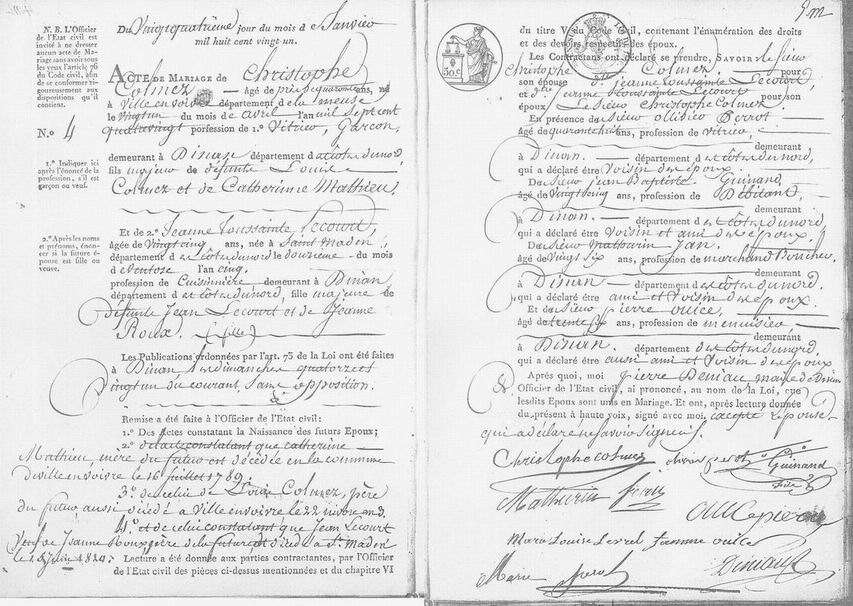 N. B. L'Officier
de l'Etat civil est
invité à ne dresser
aucun acte de Ma-
riage sans avoir sous
les yeux l'article 76
du Code civil, afin
de se conformer ri-
goureusement aux
dispositions qu'il
contient.
N.º 4
1.º Indiquer ici
après l'énoncé de la
profession, s'il est
garçon ou veuf.
2.º Après les noms
et prénoms, énon-
cer si la future é-
pouse est fille ou
veuve.
Du Vingtquatrième jour du mois de Janvier
mil huit cent vingt un.
ACTE DE MARIAGE DE Christophe
Colmez âgé de ans, né
à Ville en voivre département de la meuse
le vingt un du mois de avril l'an mil sept cent
quatrevingt profession de 1.º Vitrier, Garçon,
demeurant à Dinan département des côtes du nord,
fils majeur de défunts Louis
Colmez et de Catherinne Mathieu,
Et de 2.º Jeanne Toussainte Lecourt,
âgée de Vingt cinq ans, née à Saint Maden
département des côtes du nord le douzieme du mois
de ventose l'an cinq.
profession de Cuisinière, demeurant à Dinan
département des côtes du nord, fille majeure de
défunts Jean Lecourt et de Jeanne
Roux. (fille)
Les Publications ordonnées par l'art. 75 de la Loi ont été faites
à Dinan, les dimanches quatorze et
Vingt un du courant sans opposition.
Remise a été faite à l'Officier de l'Etat civil:
1.º Des Actes constatant la Naissance des futurs Epoux;
2.º de l'acte constatant que Catherine
Mathieu, mère du futur est décédée en la commune
de ville en voivre le 16 juillet 1789.
3.º de celui de Louis Colmez, père
du futur, aussi décédé à Ville en voivre le 22 nivose an 3.
4.º et de celui constatant que Jean Lecourt
Veuf de Jeanne Roux père de la future est décédé à St Maden
le 1814.
Lecture a été donnée aux parties contractantes, par l'Officier
de l'Etat civil des pièces ci-dessus mentionnées et du chapitre VI
du titre V du Code civil, contenant l'énumération des droits
et des devoirs respectifs des époux.
Les Contractans ont déclaré se prendre, SAVOIR le Sieur
Christophe Colmez pour
son épouse Jeanne Toussainte Lecourt,
et Jeanne Toussainte Lecourt pour son
époux Le Sieur Christophe Colmez
En présence du Sieur Perrot
âgé de quarante huit ans, profession de vitrier,
demeurant
à Dinan. département des côtes du nord,
qui a déclaré être Voisin des époux.
Du Sieur Jean Baptiste Guinand
âgé de ans, profession de Débitant,
demeurant
à Dinan. département des côtes du nord
qui a déclaré être Voisin et ami des époux.
Du Sieur Mathurin Jan,
âgé de Vingt Six ans, profession de marchand Boucher,
demeurant
à Dinan département des côtes du nord.
qui a déclaré être ami et Voisin des époux.
Et du Sieur pierre
âgé de trente six ans, profession de menuisier
demeurant
à Dinan. département des côtes du nord,
qui a déclaré être aussi ami et Voisin des époux
Après quoi, moi pierre maire de Dinan
Officier de l'Etat civil, ai prononcé, au nom de la Loi, que
lesdits Epoux sont unis en Mariage. Et ont, après lecture donnée
du présent à haute voix, signé avec moi, excepté l'épouse
qui a déclaré ne savoir signer.
Christophe Colmez
Guinand
Mathurin
Marie Louise
Marie